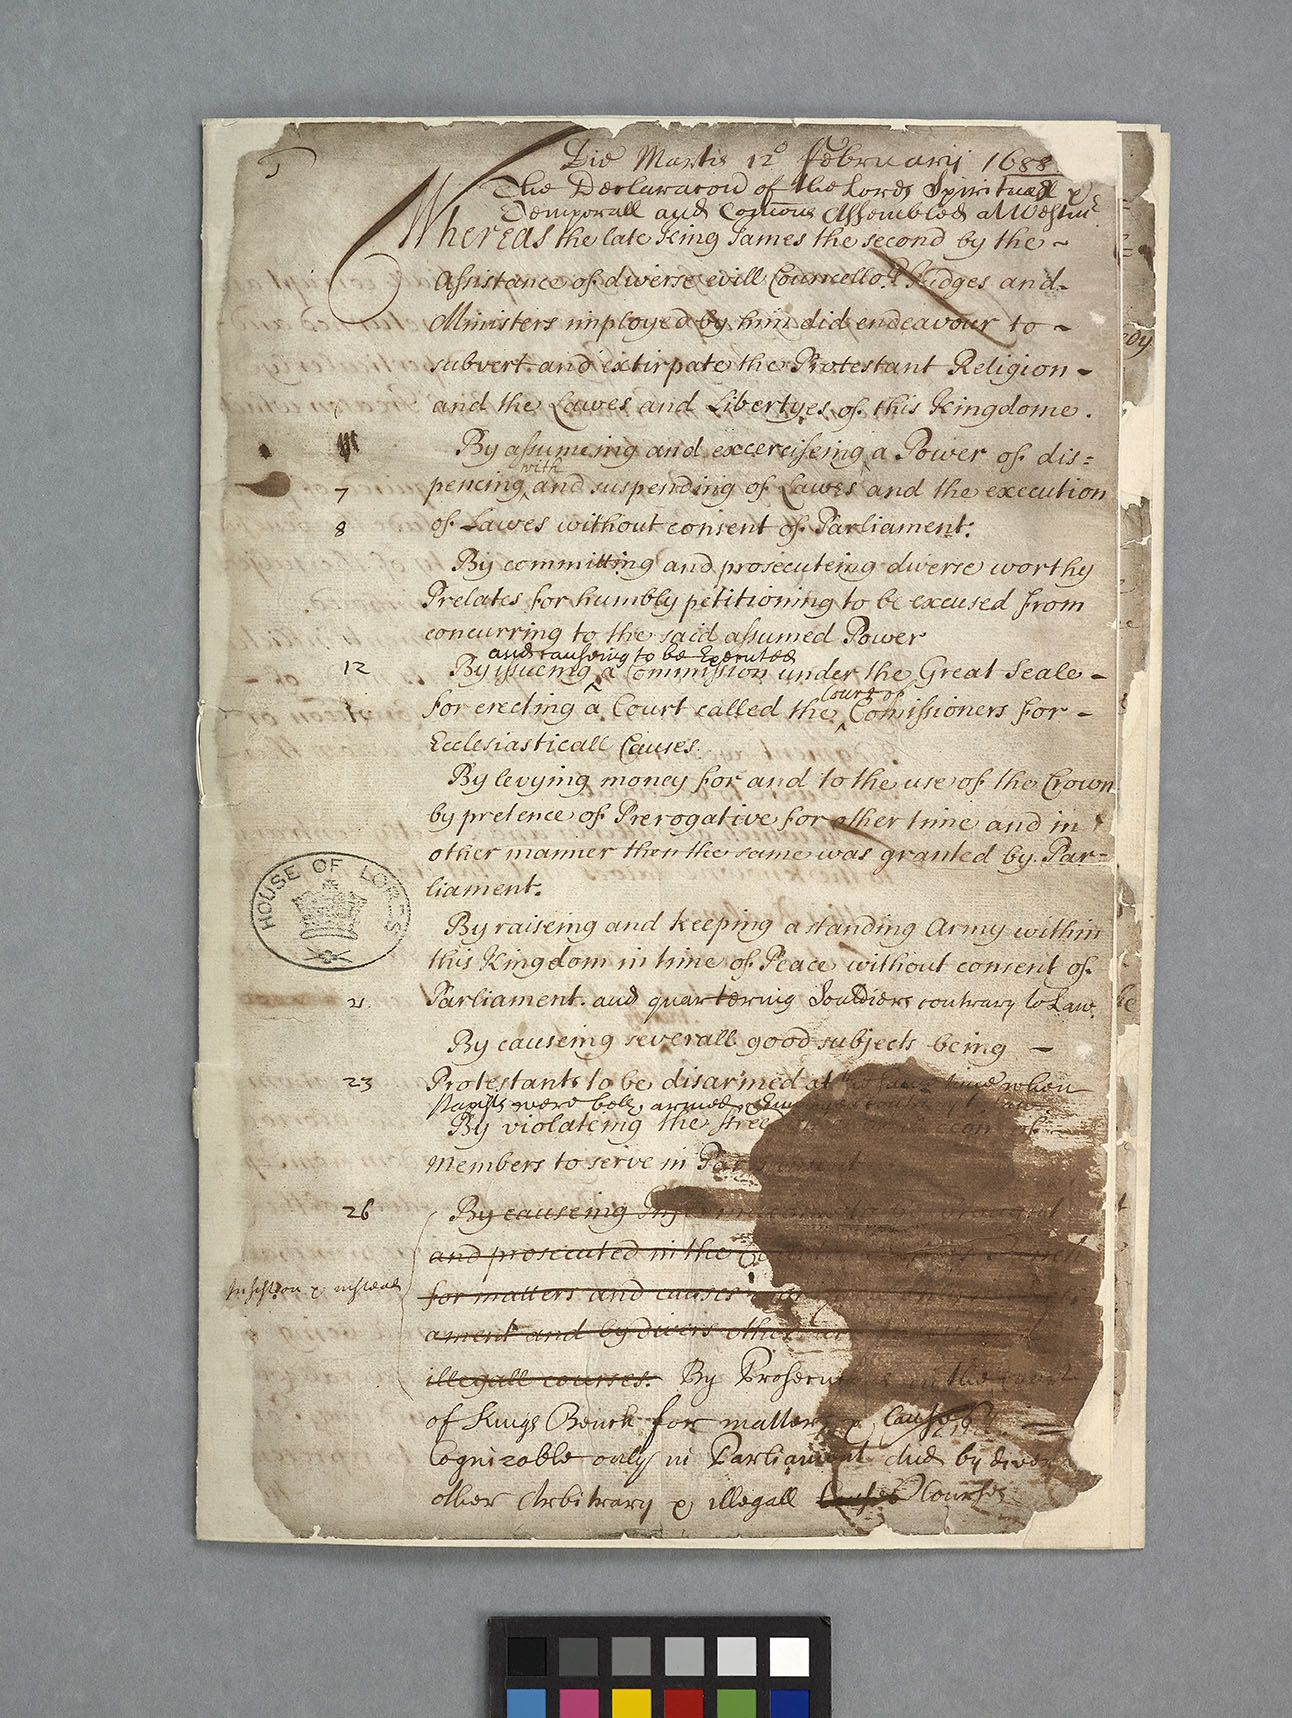 Die Martis 12º February 1688
The Declaracon of the Lords Spirituall &
Temporall and Comons Assembled at Westmr
Whereas the late King James the second by the
Assistance of diverse evill Councello.rs Judges and
Ministers imployed by him did endeavour to
subvert and extirpate the Protestant Religion
and the Lawes and Libertyes of this Kingdome.
By assumeing and excerciseing a Power of dis=
with
7 pencing and suspending of Lawes and the execution
8 of Lawes without consent of Parliament.
By committing and prosecuteing diverse worthy
Prelates for humbly petitioning to be excused from
concurring to the said assumed Power
and causeing to be Executed
12 By issueing a Commission under the Great Seale
Court of
for erecting a Court called the Comissioners for
Ecclesiasticall Causes.
By levying money for and to the use of the Crown
by pretence of Prerogative for other time and in
other manner then the same was granted by Par=
liament.
HOUSE OF LORDS
By raiseing and keeping a standing Army within
this Kingdom in time of Peace without consent of
21. Parliament. and quartering Souldiers contrary to Law.
By causeing severall good subjects being
23 Protestants to be disarmed at time when
Papists were both armed &
By violateing the
Members to serve in Parliament
26 By causeing
and prosecuted in the
for matters and causes
ament and by divers other
illegall courses. By in the Court
of Kings Bench for matters & Causes
Cognizable only in Parliament and by
other Arbitrary & illegall Causes Courses